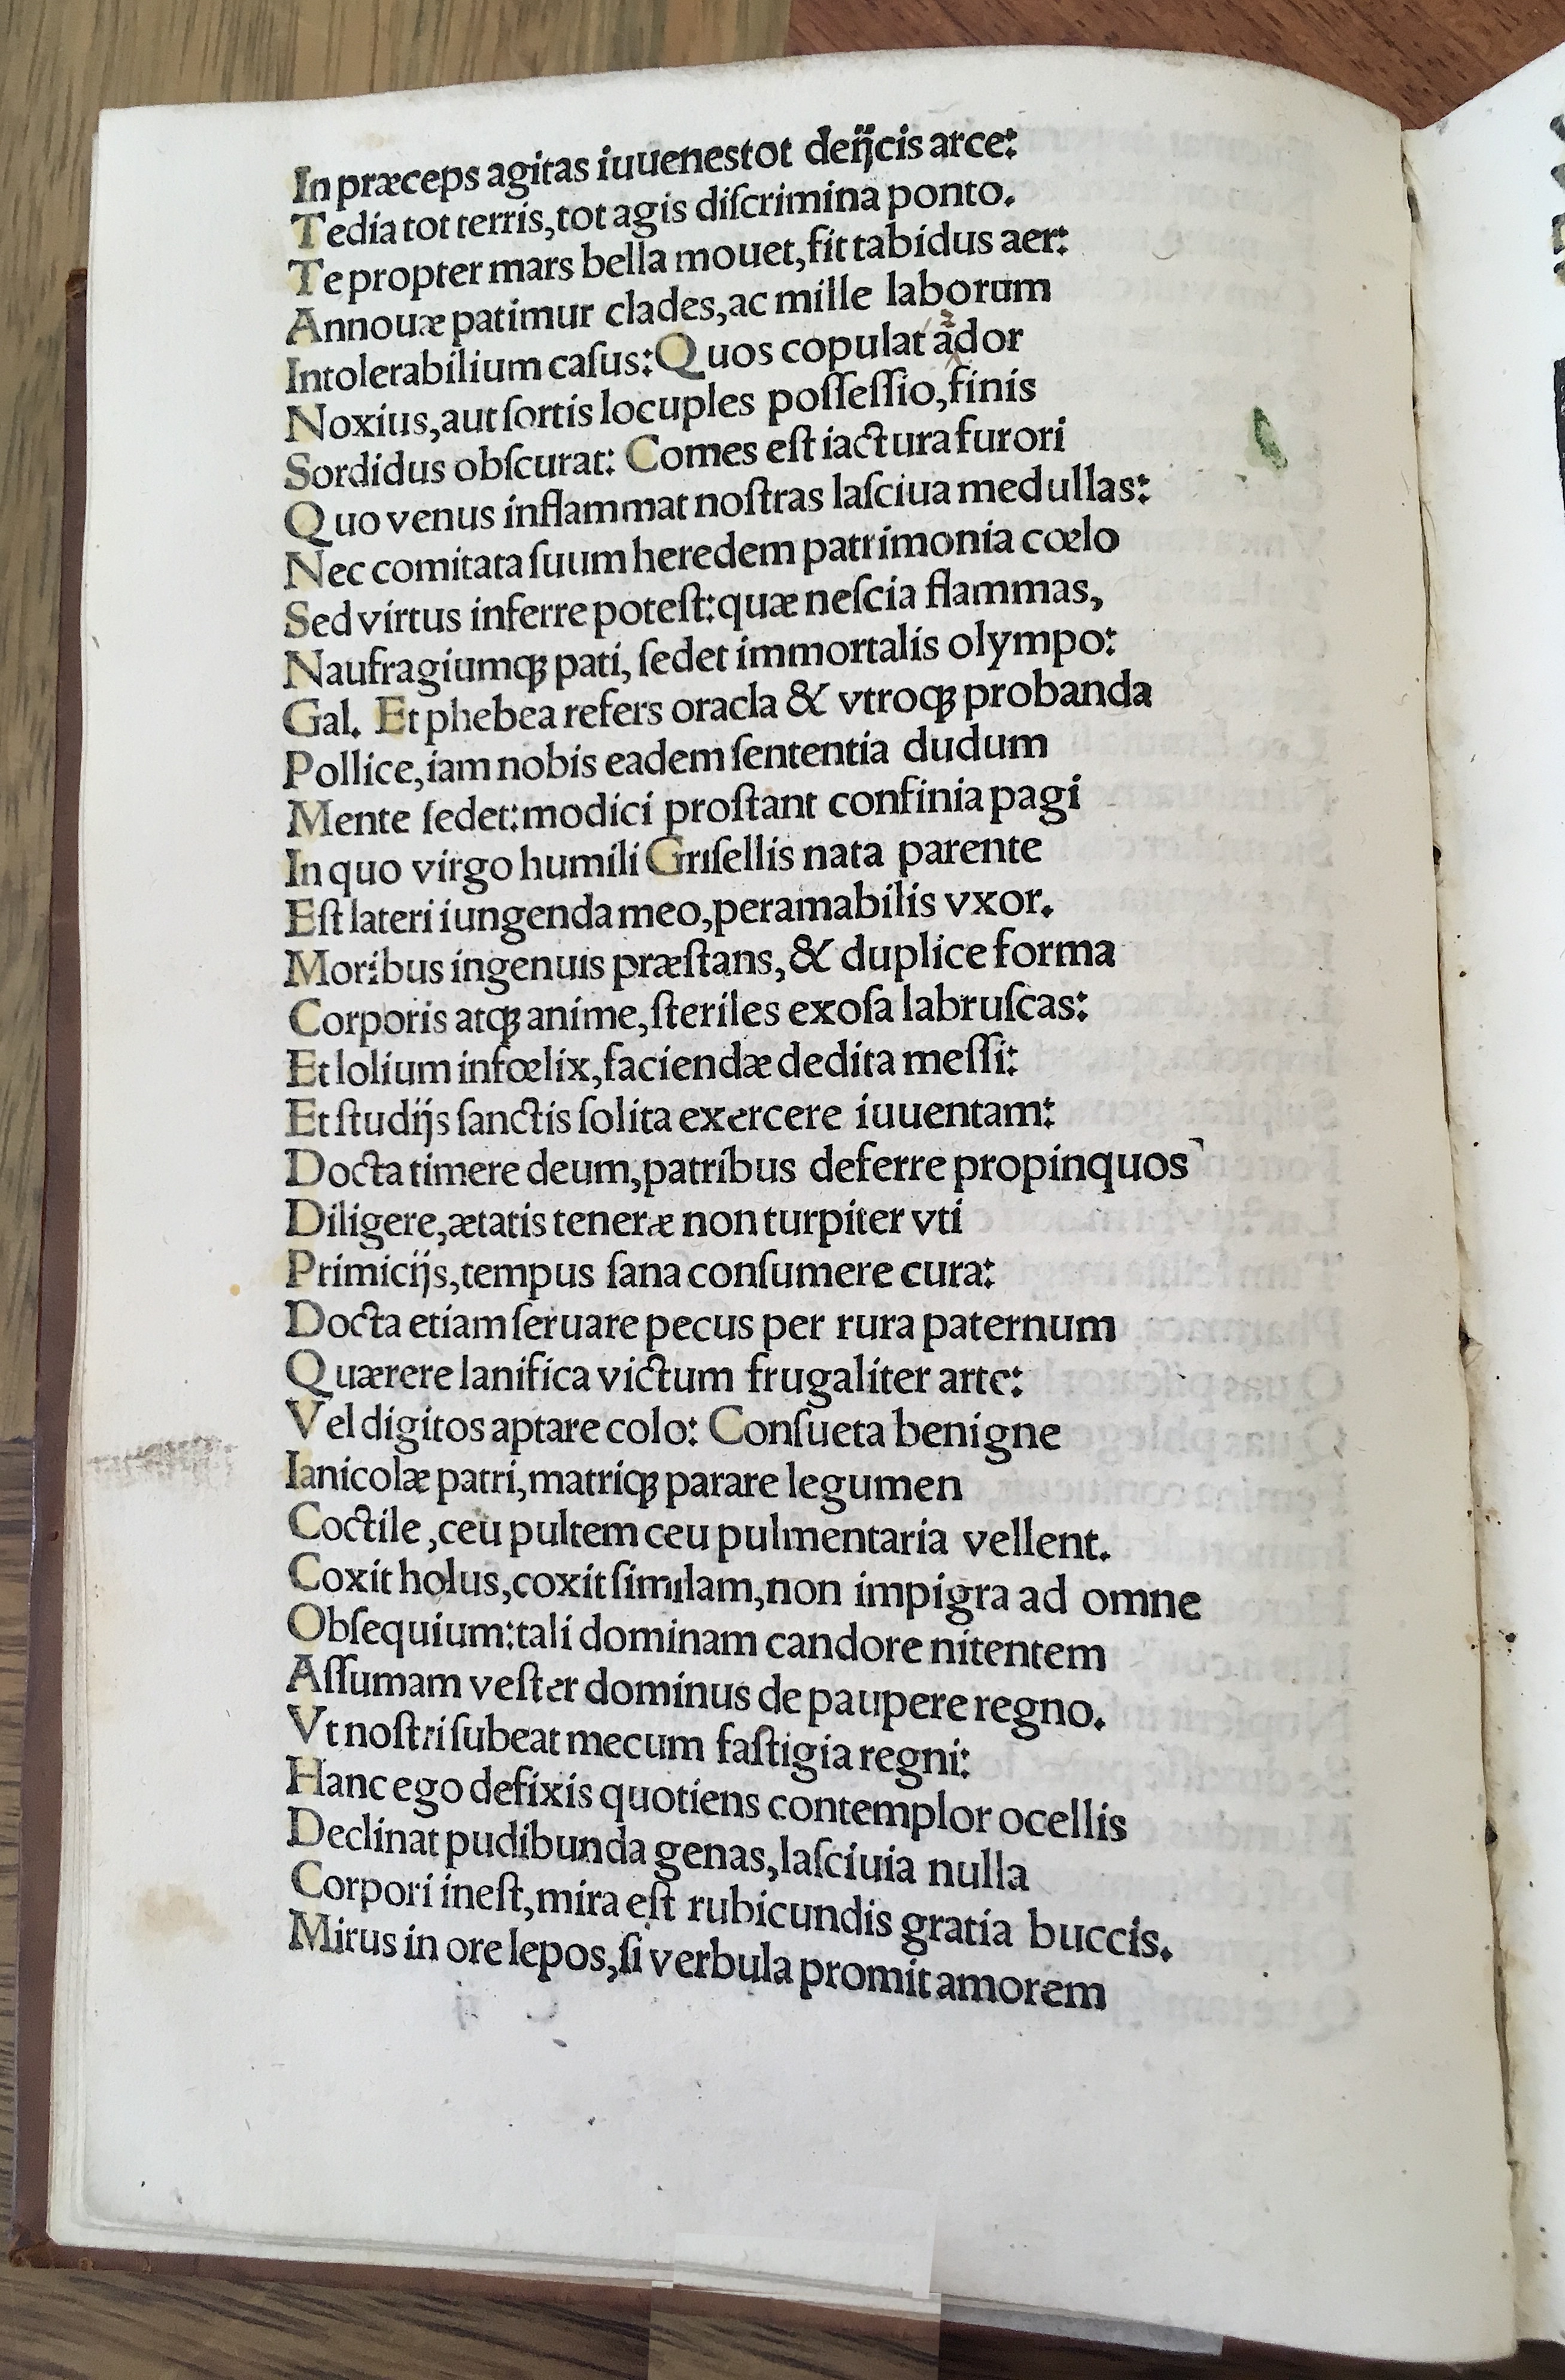 In præceps agitas iuuenestot deijcis arce:
Tedia tot terris, tot agis diſcrimina ponto.
Te propter mars bella mouet, fit tabidus aer:
Annouæ patimur clades, ac mille laborum
Intolerabilium caſus: Quos copulat ãdor
Noxius, aut ſortis locuples poſſeſſio, finis
Sordidus obſcurat: Comes eſt iactura furori
Quo venus inflammat noſtras laſciua medullas:
Nec comitata ſuum heredem patrimonia cœlo
Sed virtus inferre poteſt: quæ neſcia flammas,
Naufragiumqꝫ pati, ſedet immortalis olympo:
Gal. Et phebea refers oracla & vtroqꝫ probanda
Pollice, iam nobis eadem ſententia dudum
Mente ſedet: modici proſtant confinia pagi
In quo virgo humili Griſellis nata parente
Eſt lateri iungenda meo, peramabilis vxor.
Moribus ingenuis præſtans, & duplice forma
Corporis atqꝫ anime, ſteriles exoſa labruſcas:
Et lolium infœlix, faciendæ dedita meſſi:
Et ſtudijs ſanctis ſolita exercere iuuentam:
Docta timere deum, patribus deferre propinquos
Diligere, ætatis teneræ non turpiter vti
Primicijs, tempus ſana conſumere cura:
Docta etiam ſeruare pecus per rura paternum
Quærere lanifica victum frugaliter arte:
Vel digitos aptare colo: Conſueta benigne
Ianicolæ patri, matriqꝫ parare legumen
Coctile, ceu pultem ceu pulmentaria vellent.
Coxit holus, coxit ſimilam, non impigra ad omne
Obſequium: tali dominam candore nitentem
Aſſumam veſter dominus de paupere regno.
Vt noſtri ſubeat mecum faſtigia regni:
Hanc ego defixis quotiens contemplor ocellis
Declinat pudibunda genas, laſciuia nulla
Corpori ineſt, mira eſt rubicundis gratia buccis.
Mirus in ore lepos, ſi verbula promit amorem